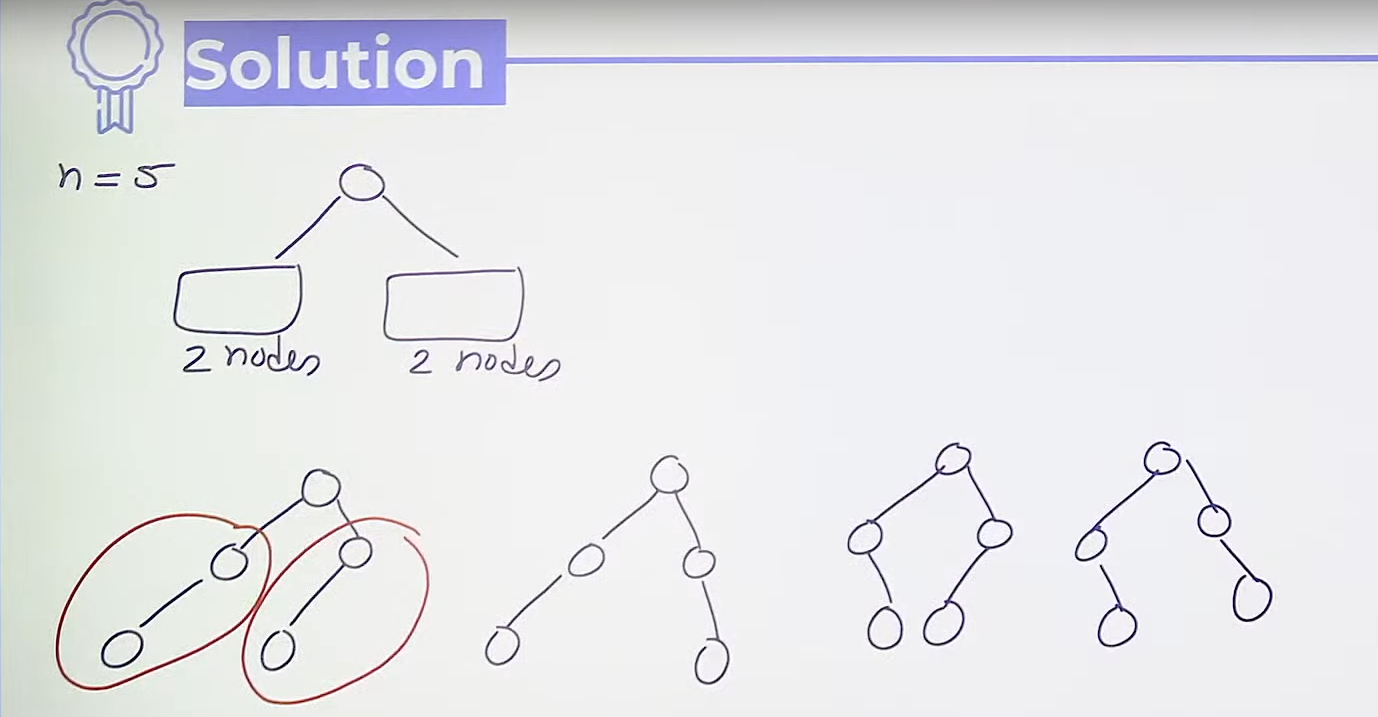 Solution
n = 5
2 nodes 2 nodes